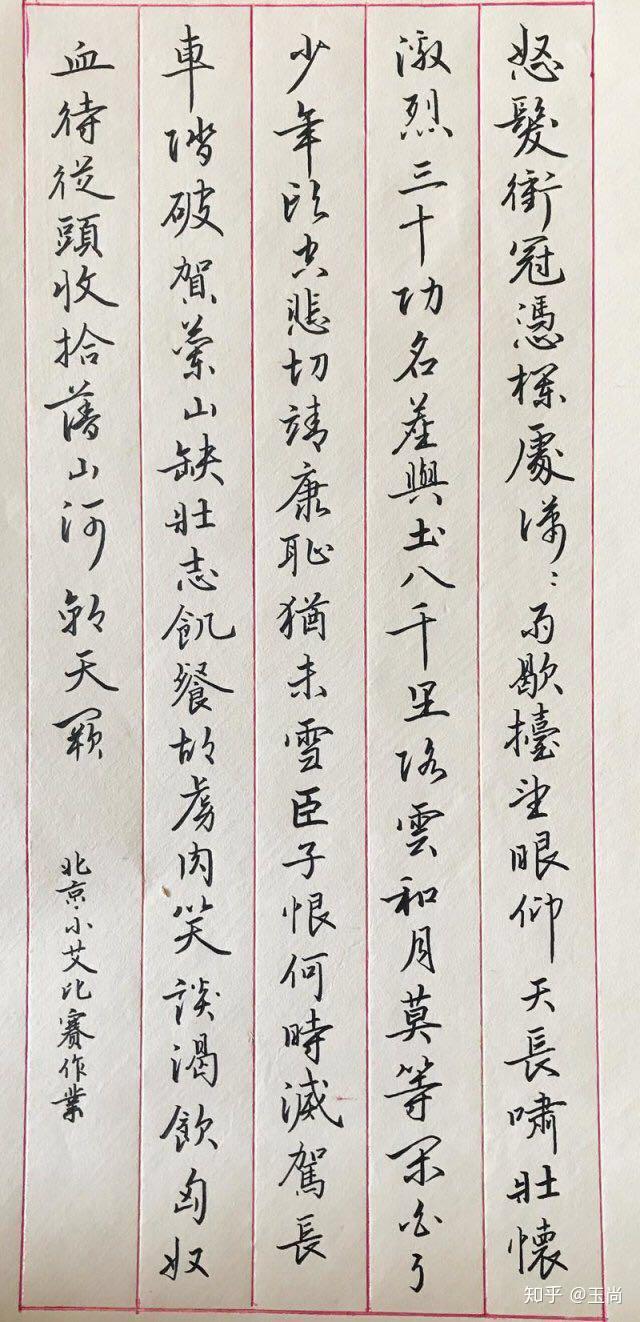 怒髮衝冠憑欄處潇〻雨歇擡望眼仰天長嘯壯懷
激烈三十功名塵與土八千里路雲和月莫等閑白了
少年頭空悲切靖康恥猶未雪臣子恨何時滅駕長
車踏破賀蘭山缺壯志飢餐胡虜肉笑談渴飲匈奴
血待從頭收拾舊山河朝天闕
北京小艾比賽作業
知乎 @玉尚